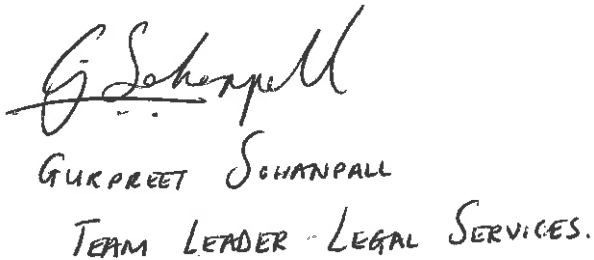 G Sohanpall
GURPREET SOHANPALL
TEAM LEADER - LEGAL SERVICES.